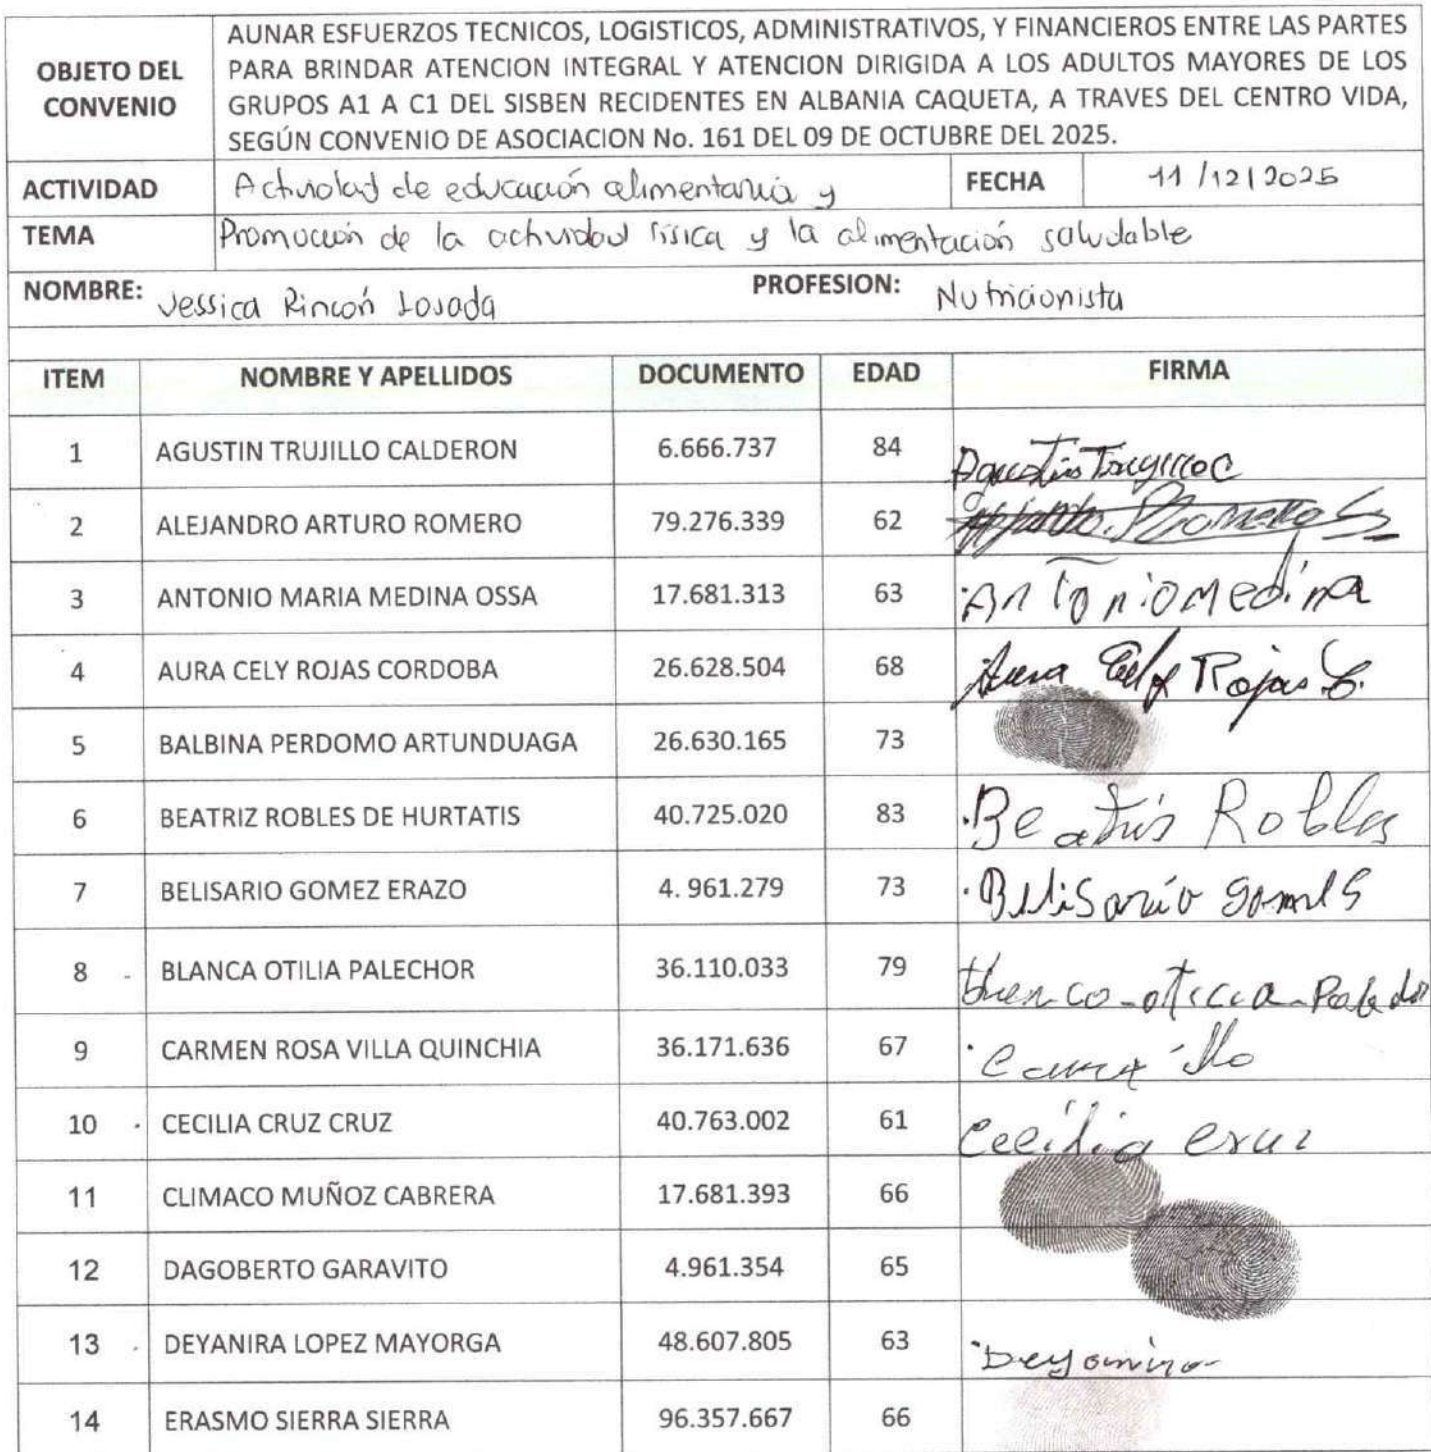 OBJETO DEL CONVENIO
AUNAR ESFUERZOS TECNICOS, LOGISTICOS, ADMINISTRATIVOS, Y FINANCIEROS ENTRE LAS PARTES
PARA BRINDAR ATENCION INTEGRAL Y ATENCION DIRIGIDA A LOS ADULTOS MAYORES DE LOS
GRUPOS A1 A C1 DEL SISBEN RECIDENTES EN ALBANIA CAQUETA, A TRAVES DEL CENTRO VIDA,
SEGÚN CONVENIO DE ASOCIACION No. 161 DEL 09 DE OCTUBRE DEL 2025.
ACTIVIDAD Actividad de educación alimentaria y FECHA 11/12/2025
TEMA Promoción de la actividad física y la alimentación saludable
NOMBRE: Jessica Rincón Losada PROFESION: Nutricionista
ITEM NOMBRE Y APELLIDOS DOCUMENTO EDAD FIRMA
1 AGUSTIN TRUJILLO CALDERON 6.666.737 84 Agustin Trujillo C
2 ALEJANDRO ARTURO ROMERO 79.276.339 62
3 ANTONIO MARIA MEDINA OSSA 17.681.313 63 Antonio medina
4 AURA CELY ROJAS CORDOBA 26.628.504 68 Aura Cely Rojas C.
5 BALBINA PERDOMO ARTUNDUAGA 26.630.165 73
6 BEATRIZ ROBLES DE HURTATIS 40.725.020 83 Beatris Robles
7 BELISARIO GOMEZ ERAZO 4. 961.279 73 Belisario gomes
8 BLANCA OTILIA PALECHOR 36.110.033 79
9 CARMEN ROSA VILLA QUINCHIA 36.171.636 67
10 CECILIA CRUZ CRUZ 40.763.002 61 Cecilia Cruz
11 CLIMACO MUÑOZ CABRERA 17.681.393 66
12 DAGOBERTO GARAVITO 4.961.354 65
13 DEYANIRA LOPEZ MAYORGA 48.607.805 63 Deyanira
14 ERASMO SIERRA SIERRA 96.357.667 66